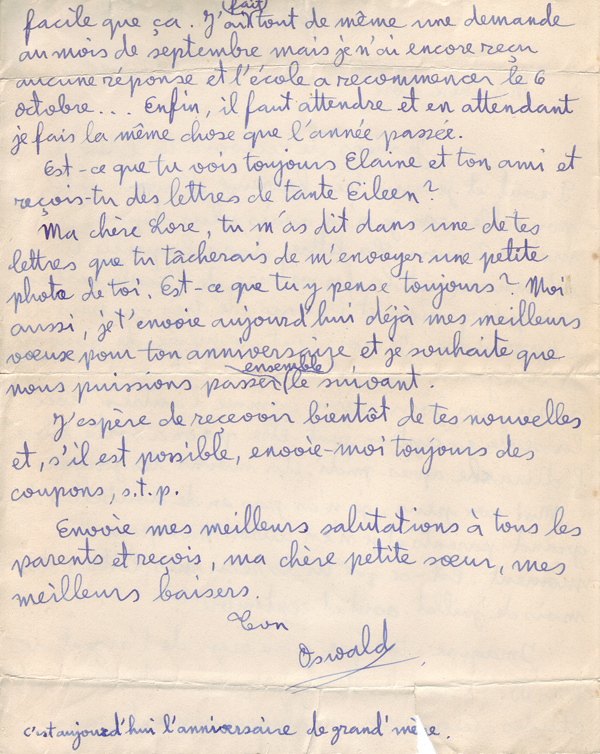 facile que ça. J'ai (fait) tout de même une demande
au mois de septembre mais je n'ai encore reçu
aucune réponse et l'école a recommencer le 6
octobre... Enfin, il faut attendre et en attendant
je fais la même chose que l'année passée.
Est-ce que tu vois toujours Elaine et ton ami et
reçois-tu des lettres de tante Eileen?
Ma chère Lore, tu m'as dit dans une de tes
lettres que tu tâcherais de m'envoyer une petite
photo de toi. Est-ce que tu y pense toujours? Moi
aussi, je t'envoie aujourd'hui déjà mes meilleurs
voeux pour ton anniversaire et je souhaite que
nous puissions passer (ensemble) le suivant.
J'espère de reçevoir bientôt de tes nouvelles
et, s'il est possible, envoie-moi toujours des
coupons, s.t.p.
Envoie mes meilleurs salutations à tous les
parents et reçois, ma chère petite soeur, mes
meilleurs baisers.
Ton
Oswald
c'est aujourd'hui l'anniversaire de grand'mère.